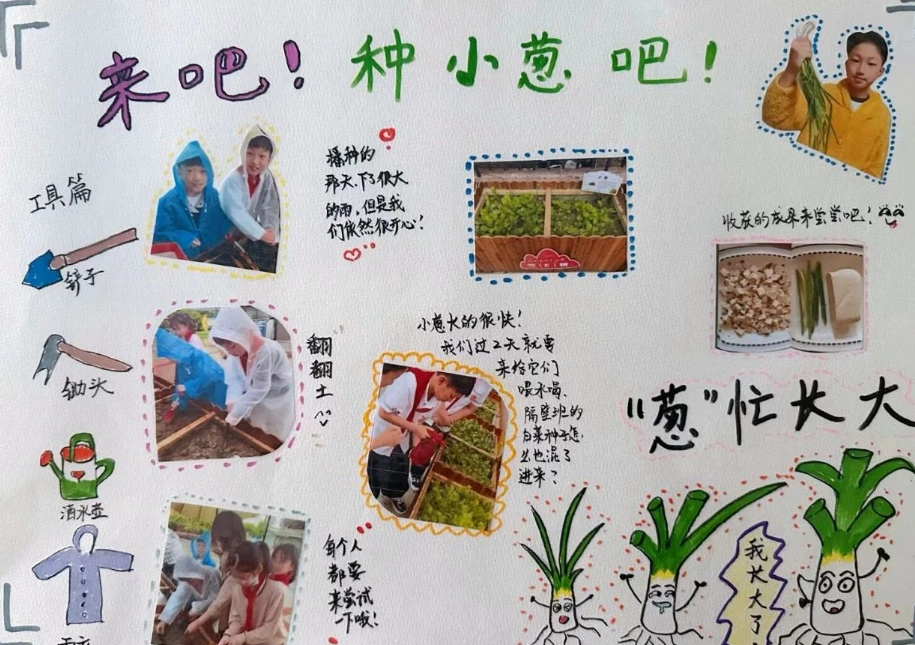 来吧！种小葱吧！
工具篇
铲子
锄头
洒水壶
播种的
那天,下了很大
的雨,但是我
们依然很开心！
翻
翻
土
每个人
都要
来尝试
一下哦！
小葱长的很快！
我们过2天就要
来给它们
喂水喝,
隔壁班的
白菜种子怎
么也混了
进来？
收获的成果来尝尝吧！
“葱”忙长大
我
长
大
了